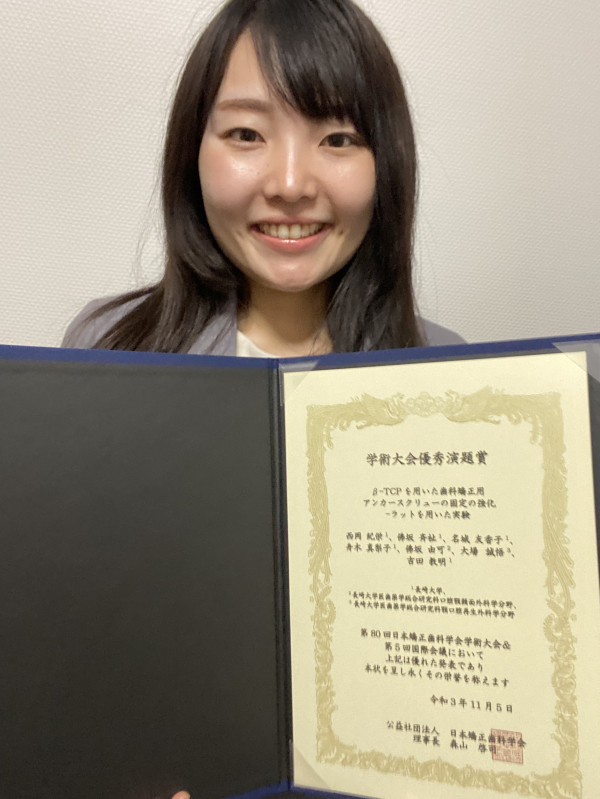 学術大会優秀演題賞
β-TCPを用いた歯科矯正用
アンカースクリューの固定の強化
-ラットを用いた実験
西岡 紀栄¹、佛坂 斉祉¹、名城 友香子¹、
舟木 真梨子¹、佛坂 由可²、大場 誠悟³、
吉田 教明¹
¹長崎大学、
²長崎大学医歯薬学総合研究科口腔顎顔面外科学分野、
³長崎大学医歯薬学総合研究科顎口腔再生外科学分野
第80回日本矯正歯科学会学術大会&
第5回国際会議において
上記は優れた発表であり
本状を呈し永くその栄誉を称えます
令和3年11月5日
公益社団法人 日本矯正歯科学会
理事長 森山 啓司